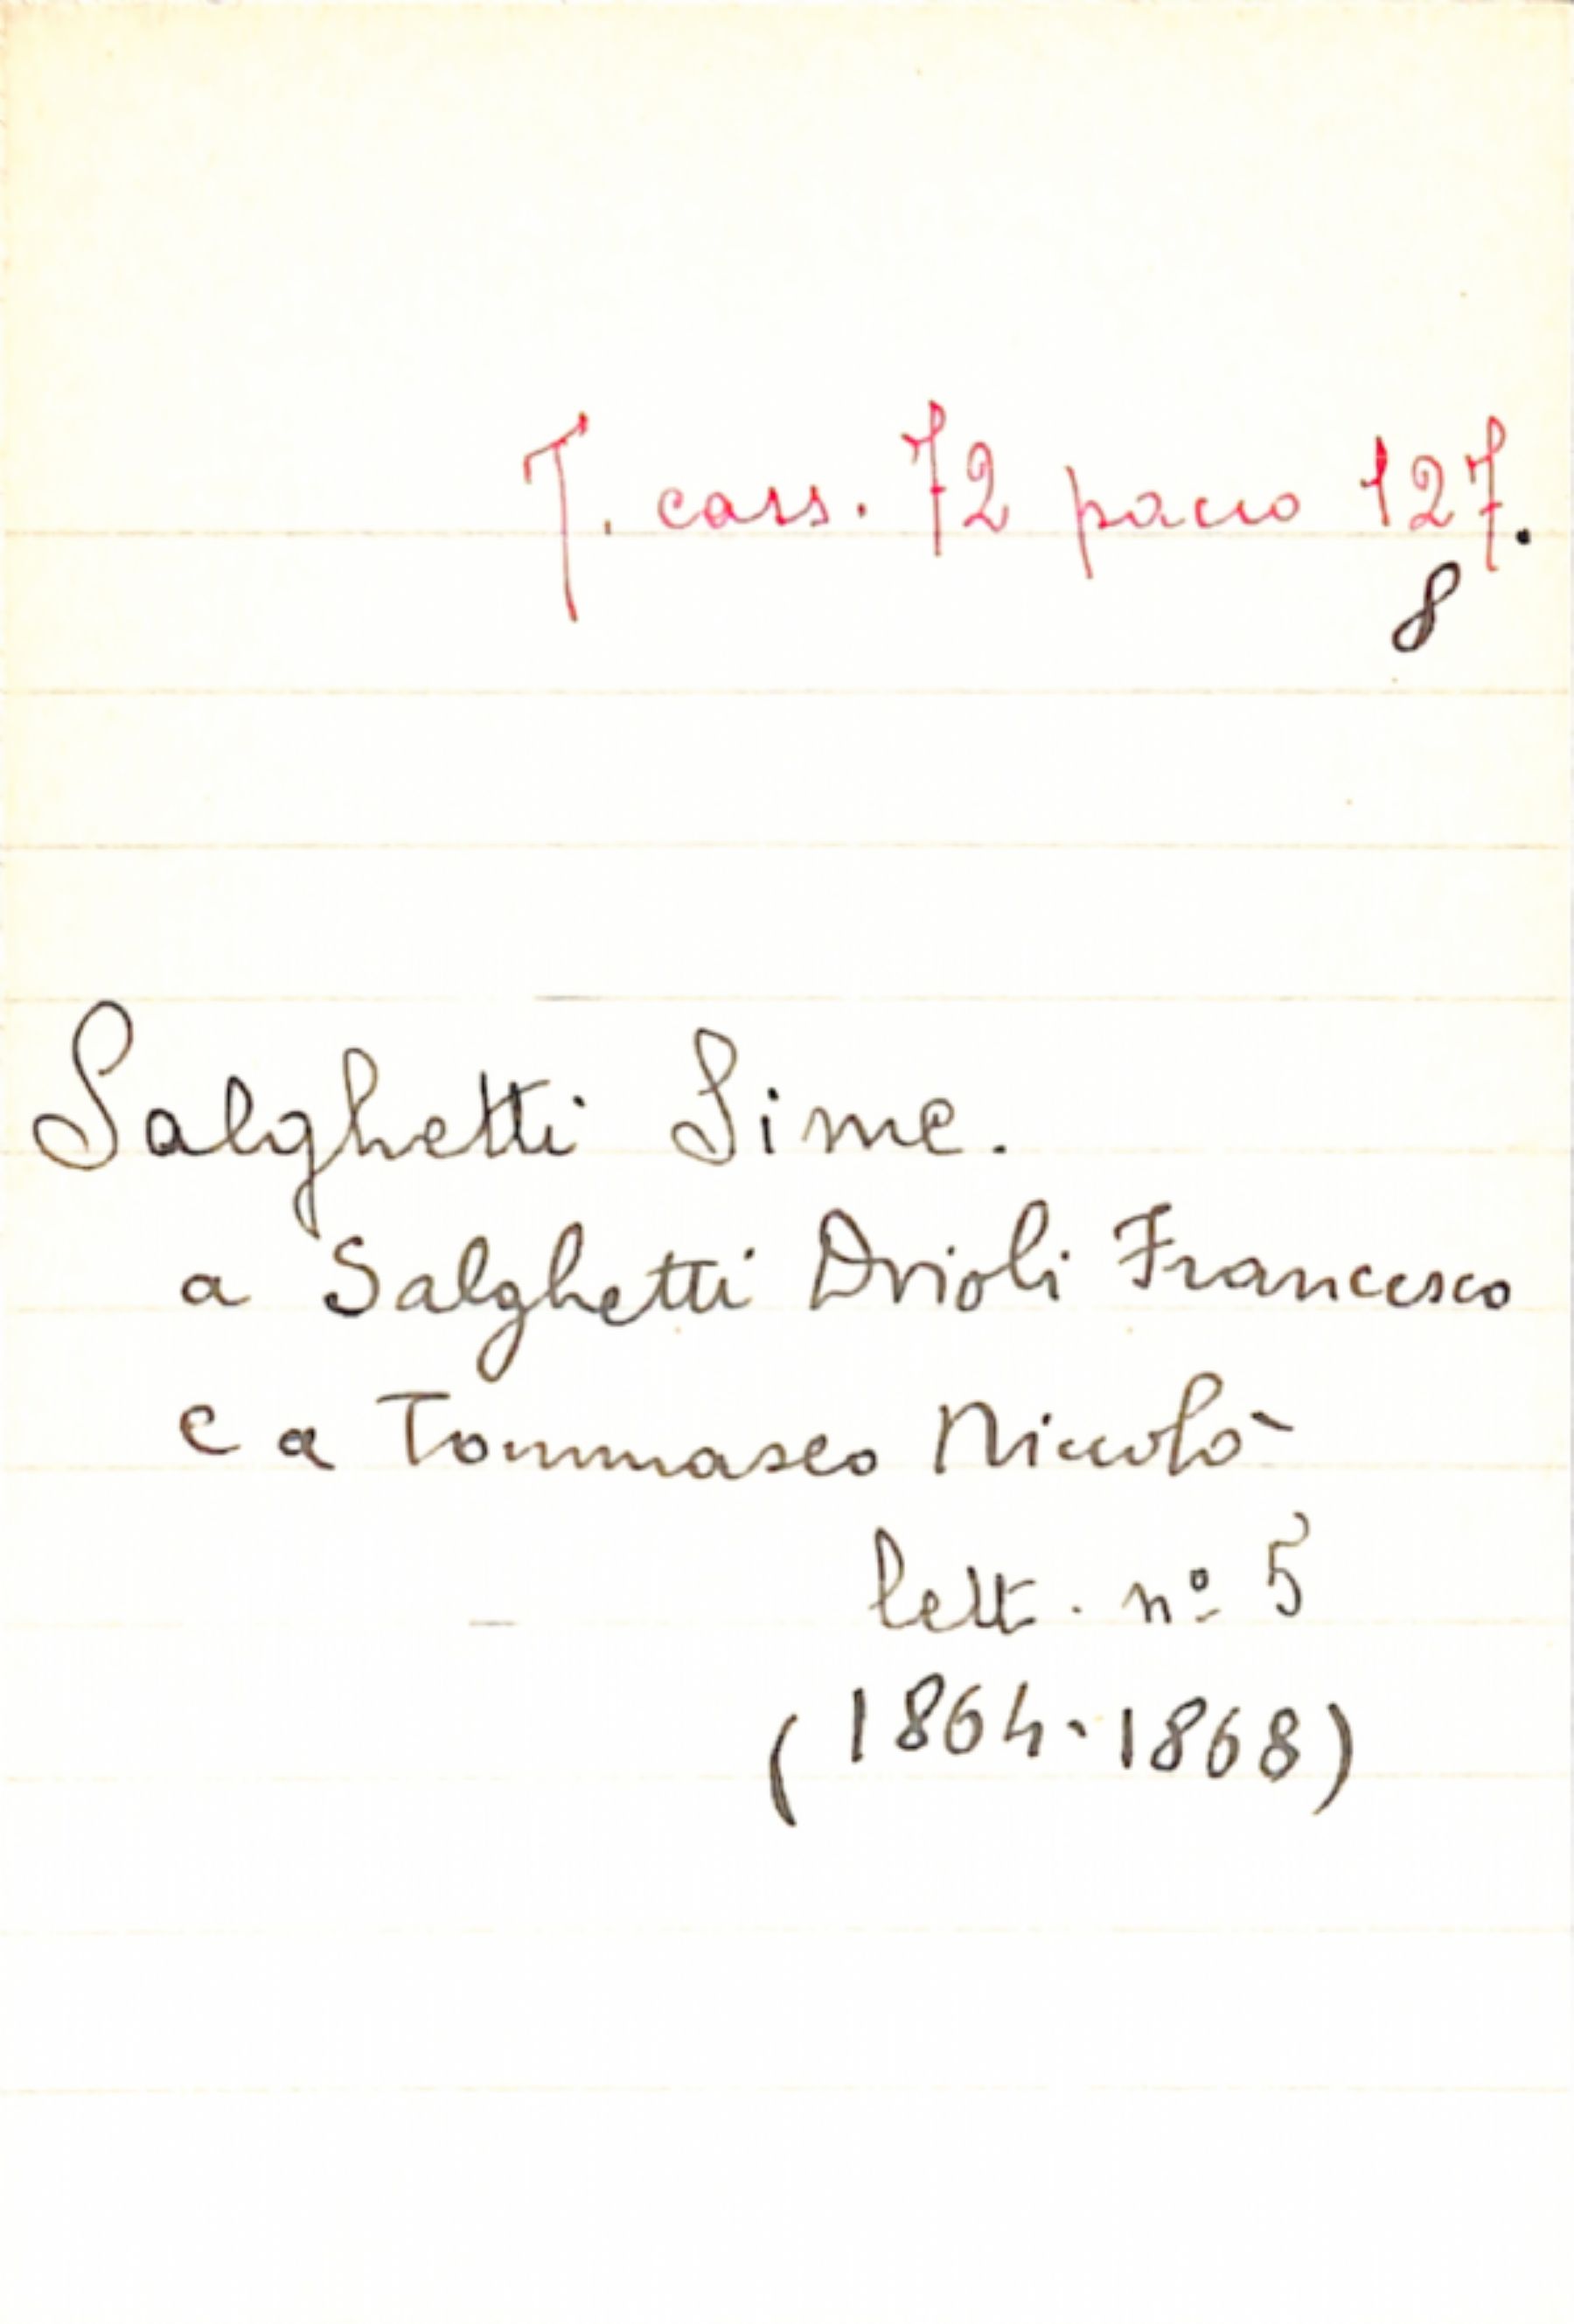 T. cass. 72 pacco 127.
8
Salghetti Sime.
a Salghetti Drioli Francesco
e a Tommaseo Niccolò
lett. nº 5
(1864-1868)